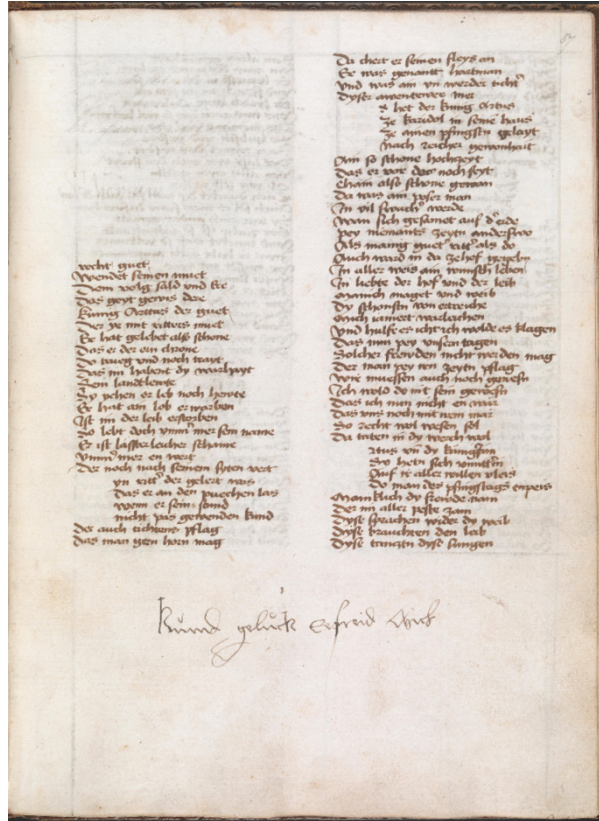 recht guet
Wendet seinen muet
Dem volg säld vnd Ere
Das geyt gewis lere
Kunig Arttus der guet
Der ye mit ritters muet
Er hat gelebet also schone
Das er der ern chrone
Do trueg vnd noch trayt
Des im habent dy warhayt
Sein landtlewte
Sy yehen er leb noch hewte
Er hat ain lob erwarben
Ist im der leib erstorben
So lebt doch vmm' mer sein name
Er ist lasterleicher schame
Vmm' mer en wert
Der noch nach seinem syten vert
yn ritt' der gelert was
Das er an den puechen las
wenn er sein stund
nicht pas gewenden kund
der auch tichtens pflag
Das man gern horn mag
Da chert er seinen fleys an
Er was genantt hartman
Vnd was ain
Dyser awentewer
het der kunig Artus
Ze karidol in seine haus
Ze ainen pfingstn gelayt
Nach reicher gewonhait
Ain so schone hochzeyt
Das er vor des noch seyt
Chain also schone gewan
Da was ain poser man
In vil swach' werde
Wan sich gesamet auf d' erde
Pey niemants zeytn anderswo
Als manig guet' ritt' als do
Auch ward in da zehof gegebn
In aller weis ain wunsch leben
In liebte der hof vnd der leib
Manich maget vnd weib
Dy schonsten von ertreiche
Mich iamert warleichen
Vnd hulfe es icht ich wolde es klagen
Das nun pey vnsern tagen
Solcher frewden nicht werden mag
Der man pey den zeytn pflag
Wir muessen auch noch genesn
Ich wold do nit sein gewesn
Das ich nun nicht en wär
Das vns noch mit irem mär
So recht wol wesen sol
Da taten in dy werch wol
Artus vn dy kunigin
Sy hetn sich
Auf ir aller willen vleis
Do man des pfingstags enpeis
Manniklich dy frewde nam
Der im aller peste zam
Dyse sprachen wider dy weib
Dyse
Dyse tanntzn dyse sungen
kumbt gelück Erfreid